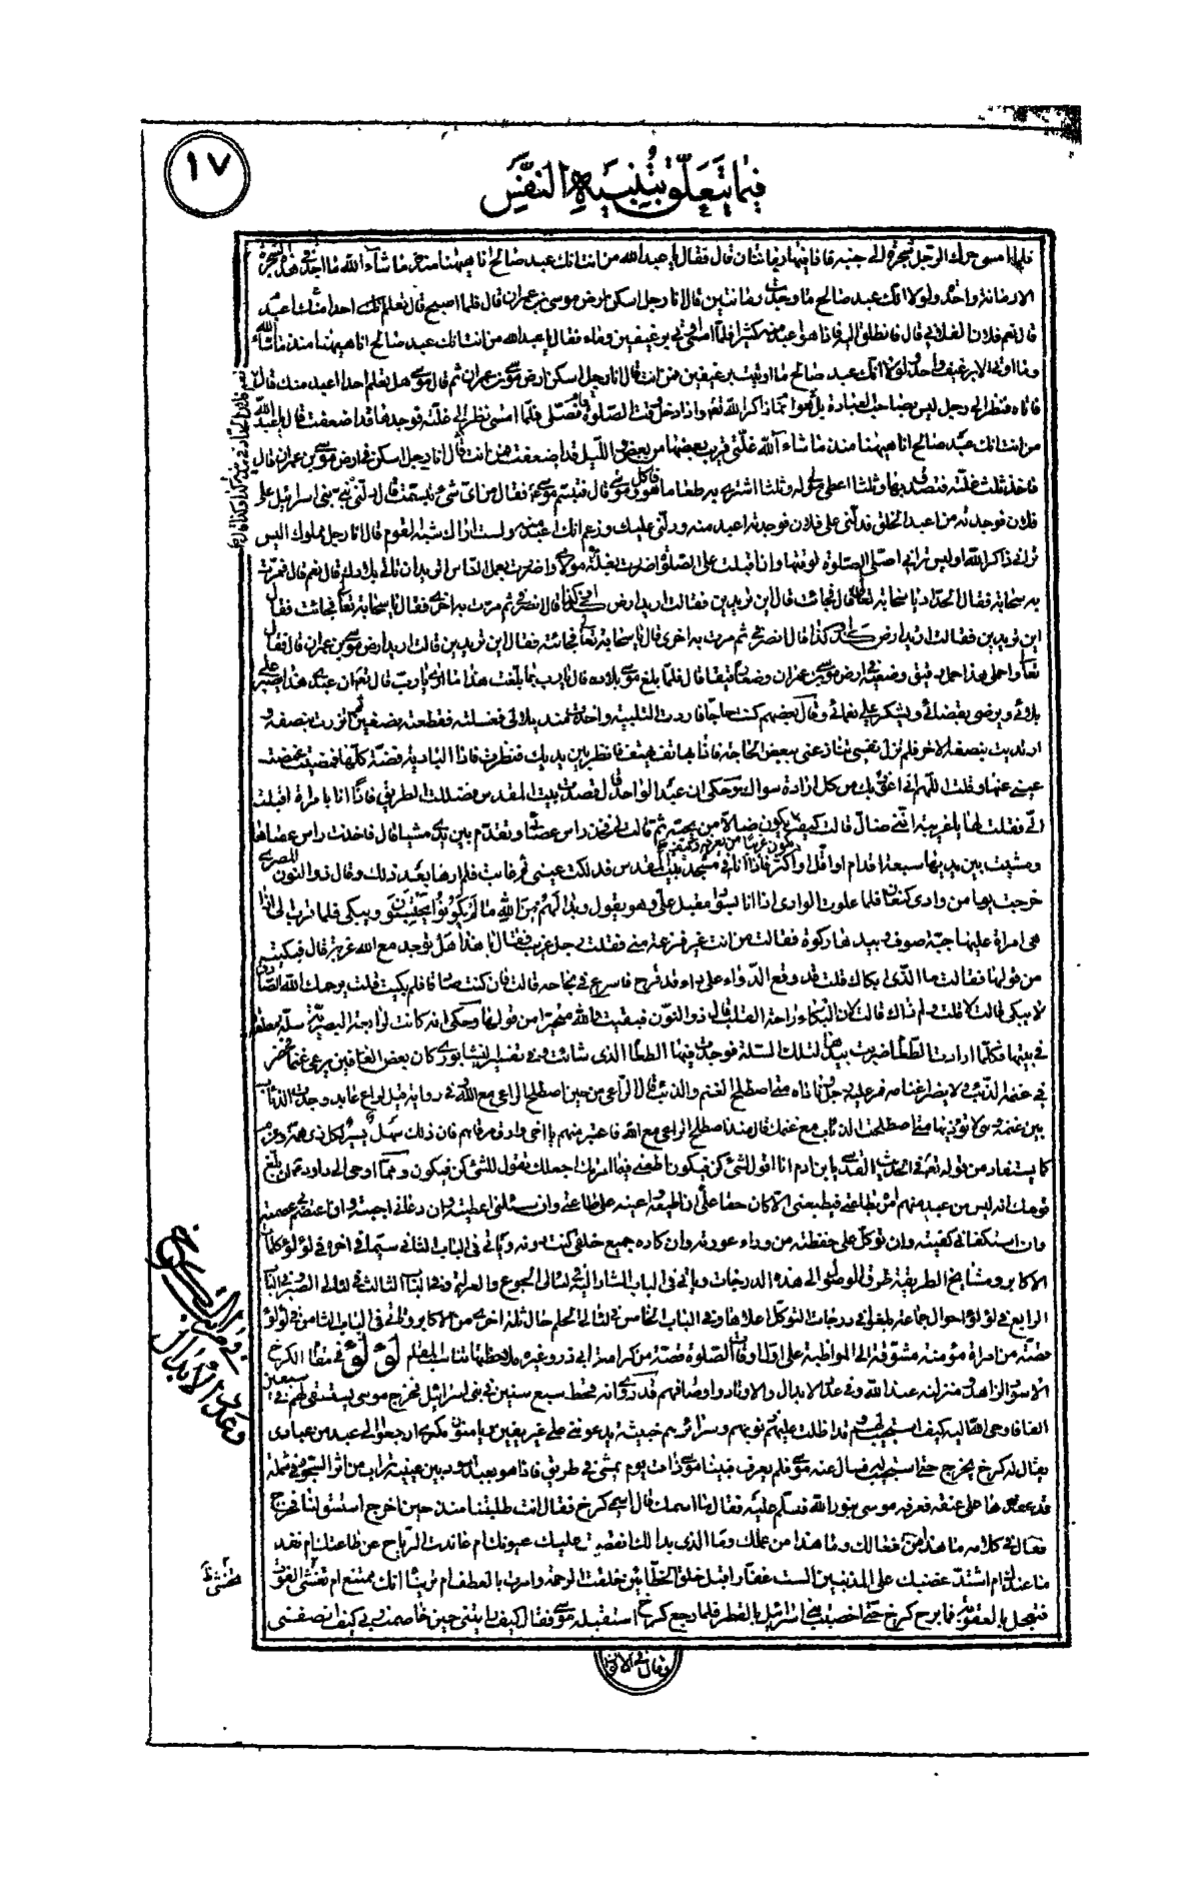 ١٧
فيما يتعلق بتنبيه النفس
فلما امسى حرك الرجل شجرة الى جنبه فاذا فيها رمانتان قال فقال يا عبد الله من انت انك عبد صالح انا ههنا منذ ما شاء الله ما اجد في هذه الشجرة
الا رمانة واحدة ولولا انك عبد صالح ما وجدت رمانتين قال انا رجل اسكن ارض موسى بن عمران قال فلما اصبح قال تعلم احدا اعبد منك
قال نعم فلان الفلاني قال فانطلق اليه فاذا هو اعبد منه كثيرا فلما امسى اوتي برغيفين وماء فقال يا عبد الله من انت انك عبد صالح انا ههنا منذ ما شاء الله
وما اوتى الا برغيف واحد ولولا انك عبد صالح ما اوتيت برغيفين فمن انت قال انا رجل اسكن ارض موسى بن عمران ثم قال موسى هل تعلم احدا اعبد منك قال نعم
فاتاه فنظر الى رجل ليس بصاحب العبادة بل هو انما ذاكر لله تعالى واذا دخل وقت الصلوة قام فصلى فلما امسى نظر الى غلته فوجدها قد اضعفت قال يا عبد الله
من انت انك عبد صالح انا ههنا منذ ما شاء الله غلتي قريب بعضها من بعض والليلة قد اضعفت فمن انت قال انا رجل اسكن في ارض موسى بن عمران قال
فاخذ ثلث غلته فتصدق بها وثلثا اعطى مولى له وثلثا اشترى به طعاما فاكل هو وموسى قال فتبسم موسى فقال من اى شىء تبسمت قال دلني نبي بني اسرائيل على
فلان فوجدته من اعبد الخلق فدلني على فلان فوجدته اعبد منه ودلني عليك وزعم انك اعبد منه ولست اراك شبه القوم قال انا رجل مملوك اليس
تراني ذاكر الله اوليس تراني اصلي الصلوة لوقتها وان اقبلت على الصلوة اضررت بغلة مولاى واضررت بعمل الناس اتريد ان تاتي بلادك قال نعم قال فمرت
به سحابة فقال الحداد يا سحابة تعالى قال فجائت قال اين تريدين فقالت اريد ارض كذا وكذا قال انصرفي ثم مرت به اخرى فقال يا سحابة تعالى فجائت فقال
اين تريدين فقالت اريد ارض كذا وكذا قال انصرفي ثم مرت به اخرى قال يا سحابة تعالى فجائته فقال اين تريدين قالت اريد ارض موسى بن عمران قال فقال
تعالى واحملي هذا حمل رفيق وضعيه في ارض موسى بن عمران وضعا رفيقا قال فلما بلغ موسى بلاده قال يا رب بما بلغت هذا ما ارى يا رب قال تعالى ان عبدى هذا يصبر على
بلائي ويرضى بقضائي ويشكر على نعمائي وقال بعضهم كنت حاجا فاردت التلبية واخذت فقطعته بنصفين اتزرت بنصفه و
ارتديت بنصفه الاخر فلم تزل نفسي تنازعني ببعض الحاجة فاذا بهاتف يهتف بي انظر بين يديك فنظرت فاذا البادية فضة كلها فغمضت
عيني عنها وقلت اللهم اني اعوذ بك من كل ارادة سواك وحكى ان عبد الواحد قال قصدت بيت المقدس فضللت الطريق فاذا انا بامرأة اقبلت
الي فقلت لها يا غريبة انت ضالة قالت كيف يكون غريبا من يعرفه وكيف يكون ضالا من يحبه ثم قالت لي خذ راس عصاى وتقدم بين يدى مشيا قال فاخذت راس عصاها
ومشيت بين يديها سبعة اقدام او اقل او اكثر فاذا انا في مسجد بيت المقدس فدلكت عيني ثم غابت فلم ارها بعد ذلك وقال ذو النون المصرى
خرجت يوما من وادى كنعان فلما علوت الوادى اذا انا بسواد مقبل علي وهو يقول وبدا لهم من الله ما لم يكونوا يحتسبون ويبكي فلما قرب الي اذا
هي امرأة عليها جبة صوف وبيدها ركوة فقالت من انت غير فزعة مني فقلت رجل غريب فقال يا هذا هل توجد مع الله غربة قال فبكيت
من قولها فقالت ما الذى ابكاك قلت قد وقع الدواء على داء قد قرح فاسرع في نجاحه قالت فان كنت صادقا فلم بكيت قلت يرحمك الله الصادق
لا يبكي قالت لا قلت ولم ذاك قالت لان البكاء راحة القلب قال ذو النون فبقيت والله متحيرا من قولها وحكى انه كانت لرابعة البصرية سلة معلقة
في بيتها فكلما ارادت الطعام ضربت بيدها لتلك السلة فوجدت فيها الطعام الذى شائت وفي تفسير النيشابورى كان بعض العارفين يرعى غنما فحضر
في غنمه الذئب ولا يضر اغنامه فمر عليه رجل وناداه متى اصطلح الغنم والذئب قال الراعى من حين اصطلح الراعي مع الله
كما يستفاد من قوله تعالى في الحديث القدسي يا بن ادم انا اقول للشئ كن فيكون اطعني فيما امرتك اجعلك تقول للشئ كن فيكون ومما اوحى الى داود يا داود بلغ
قومك انه ليس من عبد منهم امره بطاعتي فيطيعني الا كان حقا علي ان اطيعه واعينه على طاعتي وان سئلني اعطيته وان دعاني اجبته وان اعتصم بي عصمته
وان استكفاني كفيته وان توكل علي حفظته من وراء عورته وان كاده جميع خلقي كنت دونه وياتي في الباب الثاني سيما في اخره في لؤلؤ كلمات
الاكابر ومشايخ الطريقة طرق الوصول الى هذه الدرجات وياتي في الباب المشار اليه في لئالى الجوع والعزلة وفي الباب الثالث في لئالى الصبر في الباب
الرابع في لؤلؤ احوال جماعة بلغوا في درجات التوكل اعلاها وفي الباب الخامس في لئالى الحلم حال ثلة اخرى من الاكابر وياتي في الباب الثامن في لؤلؤ
قصة من امرأة مؤمنة مشوقة الى المواظبة على اول اوقات الصلوة قصة من كرامة ابي ذر وغيره ملاحظتها تناسب المقام لؤلؤ في مقام الكرخ
الاسود الزاهد ومنزلته عند الله وفي عدد الابدال والاوتاد واوصافهم قد روى انه قحط سبع سنين في بني اسرائيل فخرج موسى يستسقي لهم في سبعين
الفا فاوحى الله اليه كيف استجيب لهم وقد اظلت عليهم ذنوبهم وسرائرهم خبيثة يدعونني على غير يقين ويامنون مكرى ارجع الى عبد من عبادى
يقال له كرخ يخرج حتى استجيب له فسال عنه موسى فلم يعرف فبينا موسى ذات يوم يمشي في طريق فاذا هو بعبد اسود بين عينيه تراب من اثر السجود في شملة
قد عقدها على عنقه فعرفه موسى بنور الله فسلم عليه فقال ما اسمك قال اسمي كرخ فقال انت طلبتنا منذ حين اخرج استسق لنا فخرج
فقال في كلامه ما هذا من فعالك وما هذا من حلمك وما الذى بدا لك انقصت عليك عيونك ام عاندت الرياح عن طاعتك ام نفد
ما عندك ام اشتد غضبك على المذنبين الست غفارا قبل خلق الخطائين خلقت الرحمة وامرت بالعطف ام ترينا انك ممتنع ام تخشى الفوت
فتعجل بالعقوبة فما برح كرخ حتى اخضبت بني اسرائيل بالقطر فلما رجع كرخ استقبله موسى فقال كيف رايتني حين خاصمت ربي كيف انصفني
وعدد الابدال
تخشى
وقال في الان